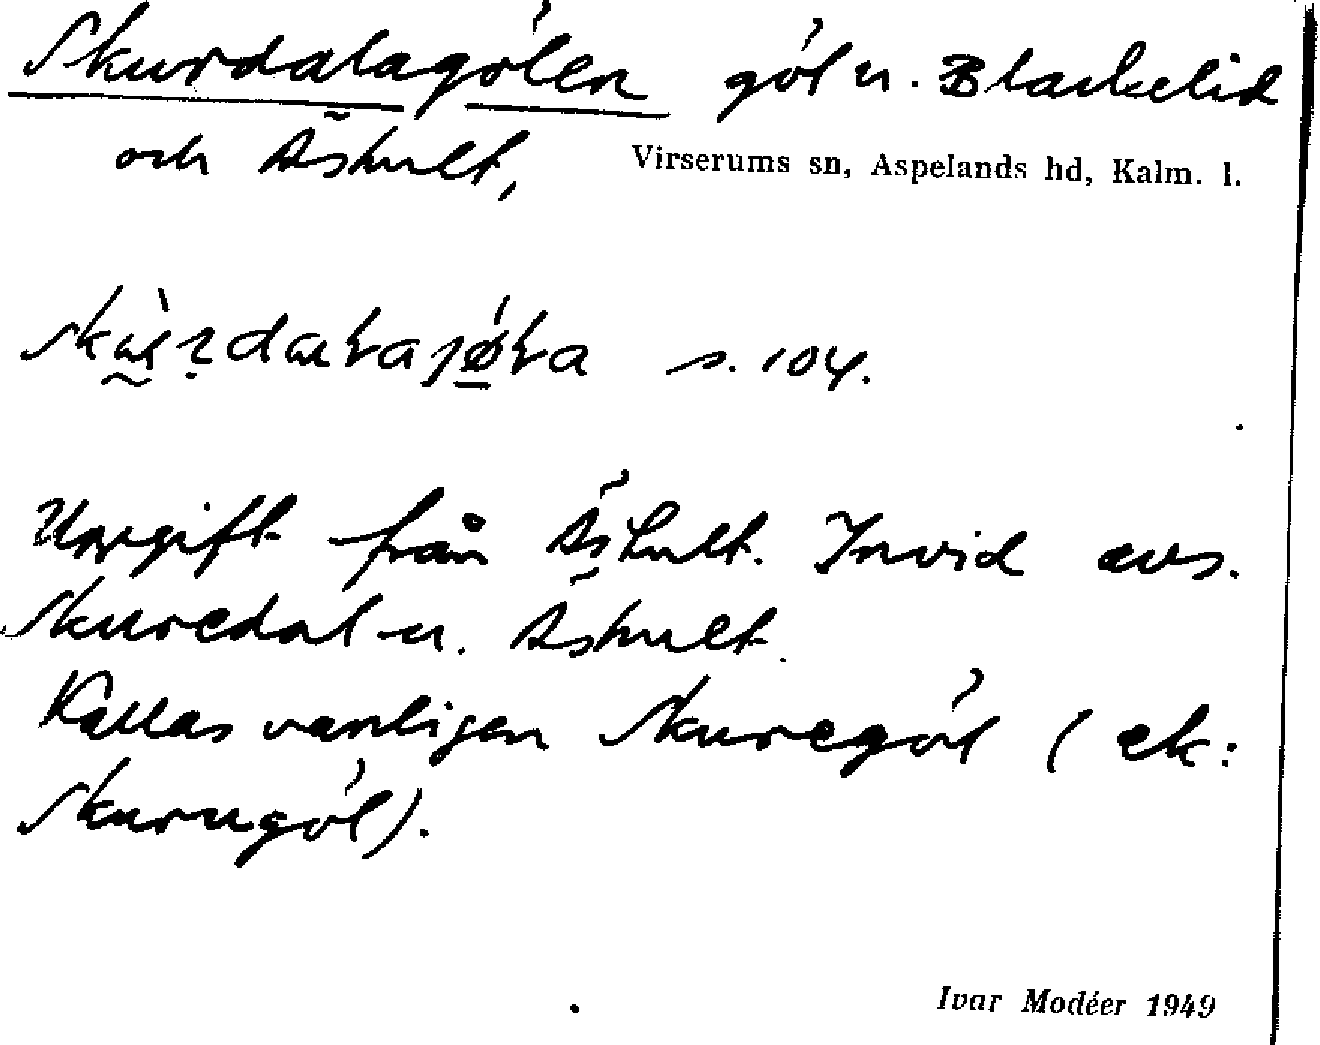 Skurdalagölen göl u. Blackelid
och Äshult, Virserums sn, Aspelands hd, Kalm. l.
s. 104.
Uppgift från Äshult. Invid avs.
Skuredal u. Äshult.
Kallas vanligen Skuregöl (ek:
Skurugöl).
Ivar Modéer 1949